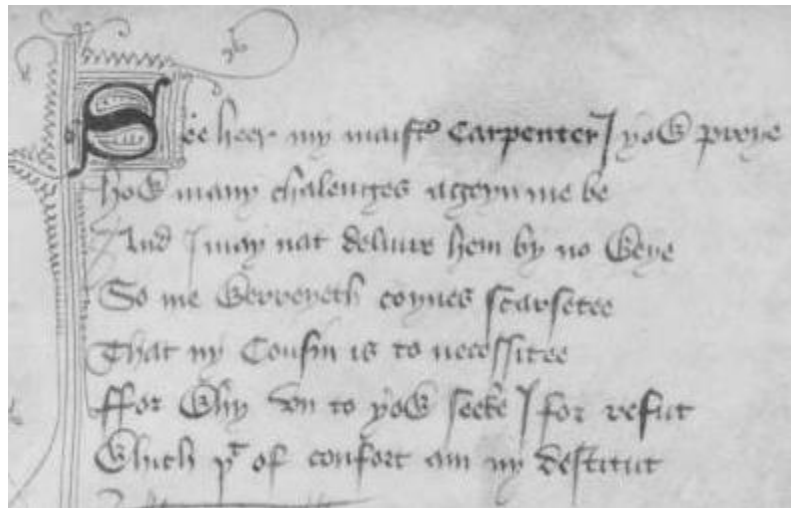 See heer my maistre Carpenter I yow preye
how many chalenges ageyn me be
And I may nat deliure hem by no weye
So me werreyeth coynes scarsetee
That ny Cousin is to necessitee
ffor why vn to yow seeke I for refut
Which þt of confort am ny destitut